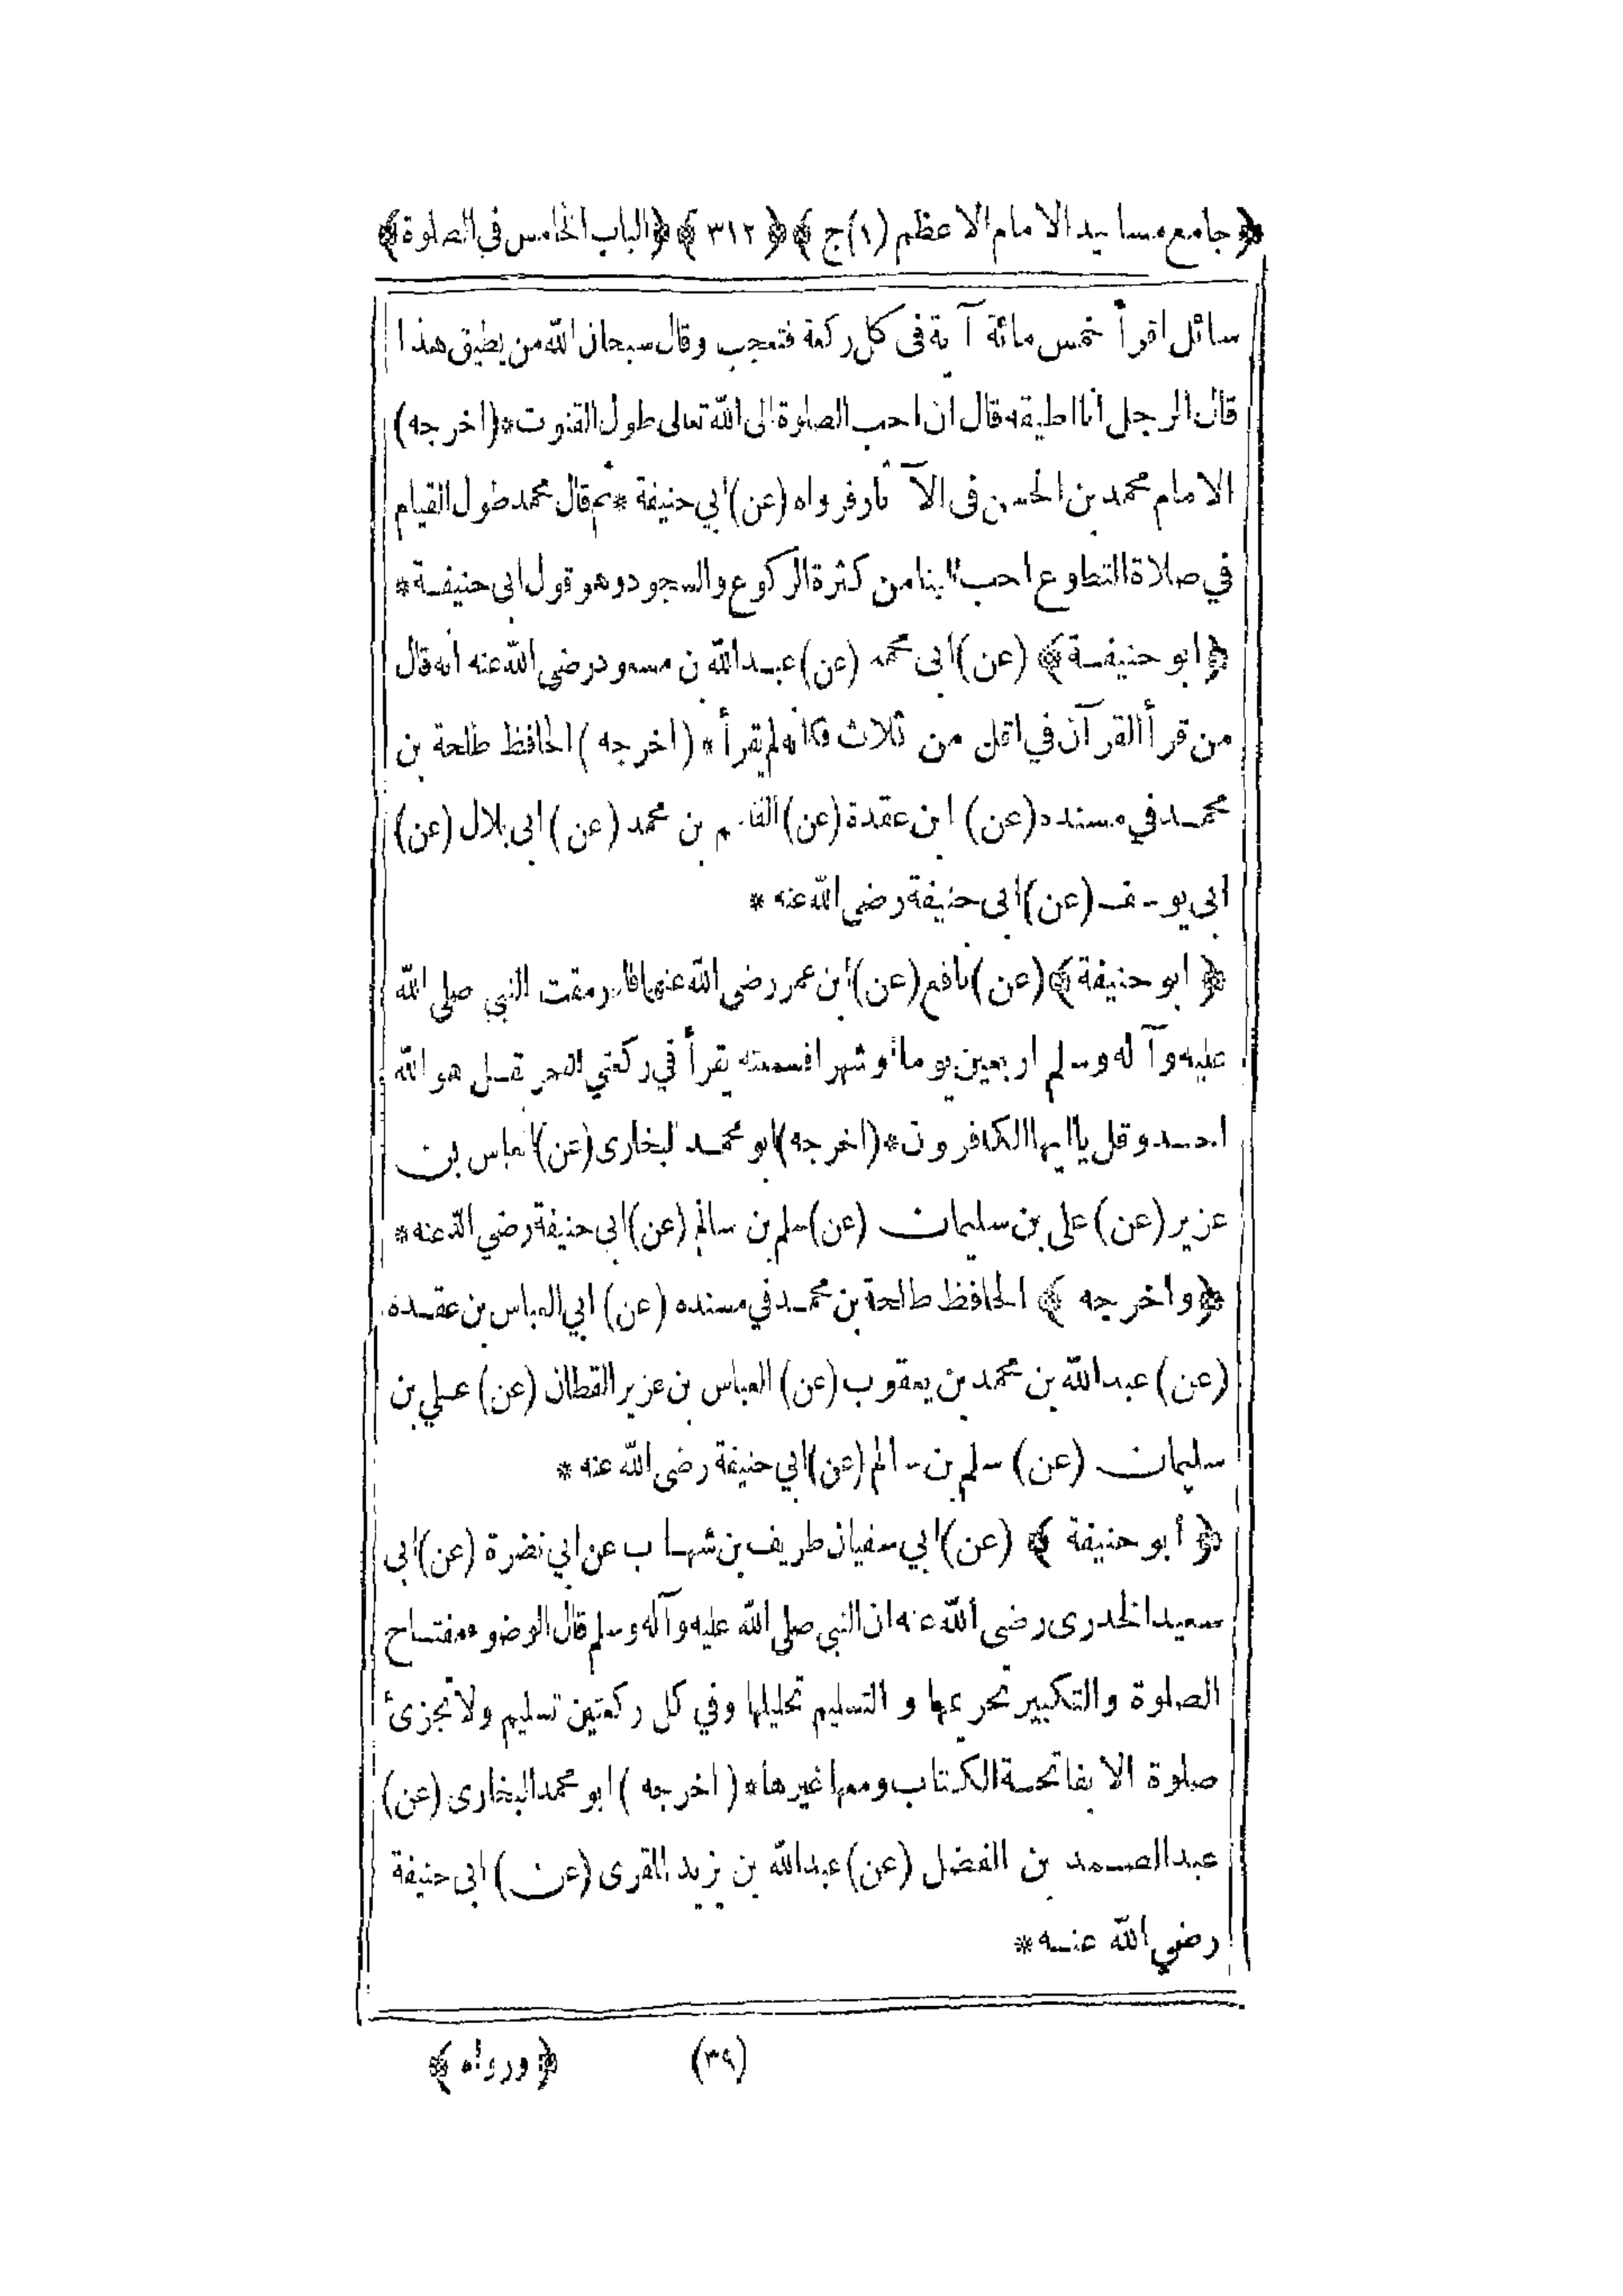 ﴿جامع مسانيد الامام الاعظم (١)ج﴾ ﴿٣١٢﴾ ﴿الباب الخامس في الصلوة﴾
سائل اقرأ خمس مائة آية فى كل ركعة فتعجب وقال سبحان الله من يطيق هذا
قال الرجل انا اطيقه قال ان احب الصلوة الى الله تعالى طول القنوت*(اخرجه)
الامام محمد بن الحسن فى الآثار فرواه (عن) ابي حنيفة *ثم قال محمد طول القيام
في صلاة التطوع احب الينا من كثرة الركوع والسجود وهو قول ابى حنيفة*
﴿ابو حنيفة﴾ (عن) ابى محمد (عن) عبد الله بن مسعود رضى الله عنه انه قال
من قرأ القرآن في اقل من ثلاث فكانه لم يقرأ * (اخرجه) الحافظ طلحة بن
محمد في مسنده (عن) ابن عقدة (عن) القاسم بن محمد (عن) ابى بلال (عن)
ابى يوسف (عن) ابى حنيفة رضى الله عنه *
﴿ابو حنيفة﴾ (عن) نافع (عن) ابن عمر رضى الله عنهما قال رمقت النبي صلى الله
عليه وآله وسلم اربعين يوما او شهرا فسمعته يقرأ في ركعتي الفجر قل هو الله
احد وقل يا ايها الكافرون*(اخرجه) ابو محمد البخارى (عن) العباس بن
عزير (عن) على بن سليمان (عن) سلم بن سالم (عن) ابي حنيفة رضي الله عنه*
﴿واخرجه﴾ الحافظ طلحة بن محمد في مسنده (عن) ابي العباس بن عقده
(عن) عبد الله بن محمد بن يعقوب (عن) العباس بن عزير القطان (عن) علي بن
سليمان (عن) سلم بن سالم (عن) ابي حنيفة رضى الله عنه *
﴿أبو حنيفة﴾ (عن) ابي سفيان طريف بن شهاب عن ابي نضرة (عن) ابى
سعيد الخدرى رضى الله عنه ان النبي صلى الله عليه وآله وسلم قال الوضوء مفتاح
الصلوة والتكبير تحريمها و التسليم تحليلها وفي كل ركعتين تسليم ولا تجزئ
صلوة الا بفاتحة الكتاب ومعها غيرها* (اخرجه) ابو محمد البخارى (عن)
عبد الصمد بن الفضل (عن) عبد الله بن يزيد المقرى (عن) ابى حنيفة
رضي الله عنه*
(٣٩) ﴿ورواه﴾